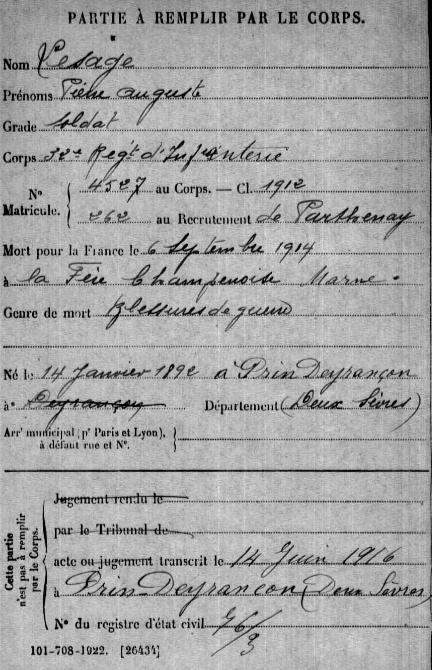 PARTIE À REMPLIR PAR LE CORPS.
Nom Lesage
Prénoms Pierre auguste
Grade Soldat
Corps 32e Regt d'Infanterie
No Matricule. { 4527 au Corps. — Cl. 1912
262 au Recrutement de Parthenay
Mort pour la France le 6 Septembre 1914
à la Fère Champenoise Marne.
Genre de mort Blessures de guerre
Né le 14 Janvier 1892 à Prin Deyrançon
à Deyrançon Département (Deux Sèvres)
Arrt municipal (pr Paris et Lyon), }
à défaut rue et No.
Cette partie n'est pas à remplir par le Corps.
Jugement rendu le
par le Tribunal de
acte ou jugement transcrit le 14 Juin 1916
à Prin Deyrançon (Deux Sèvres)
No du registre d'état civil 76/3
101-708-1922. [26434]